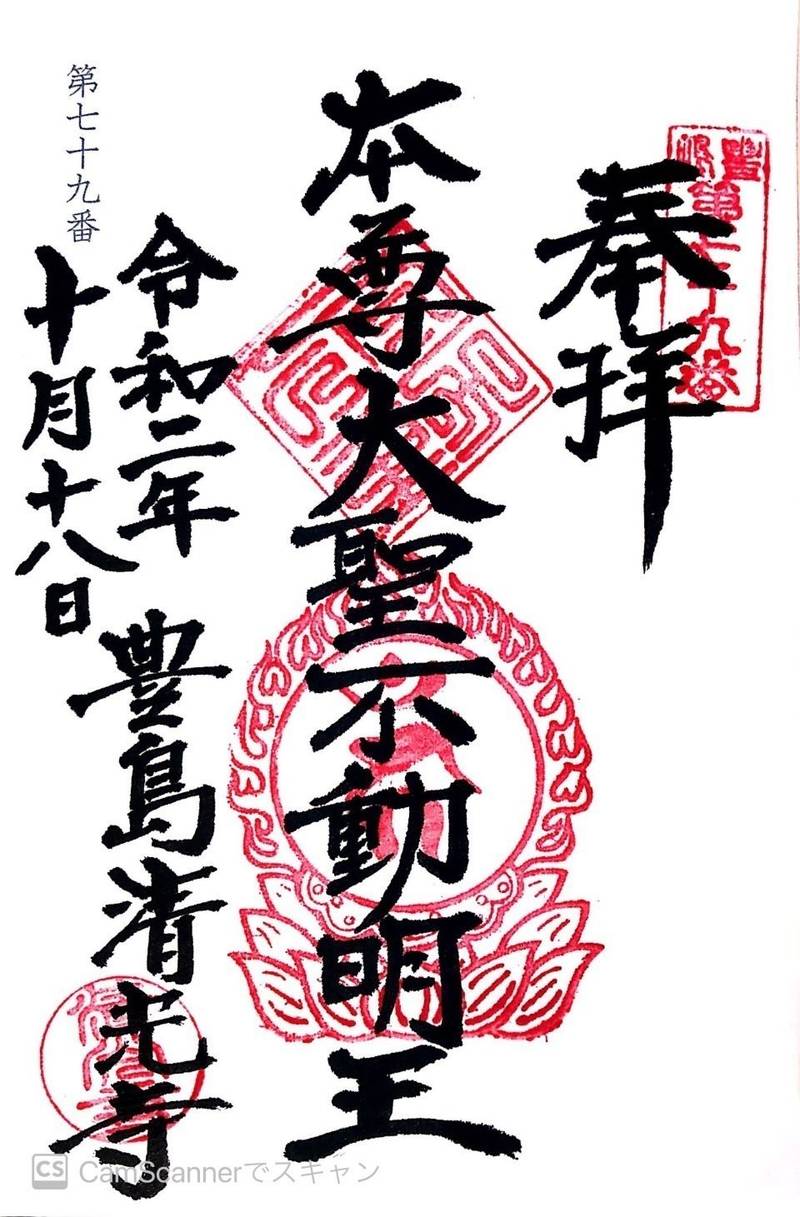 奉拝
豊
第七十九番
本尊大聖不動明王
令和二年
十月十八日
豊島清光寺
第七十九番
CS CamScannerでスキャン